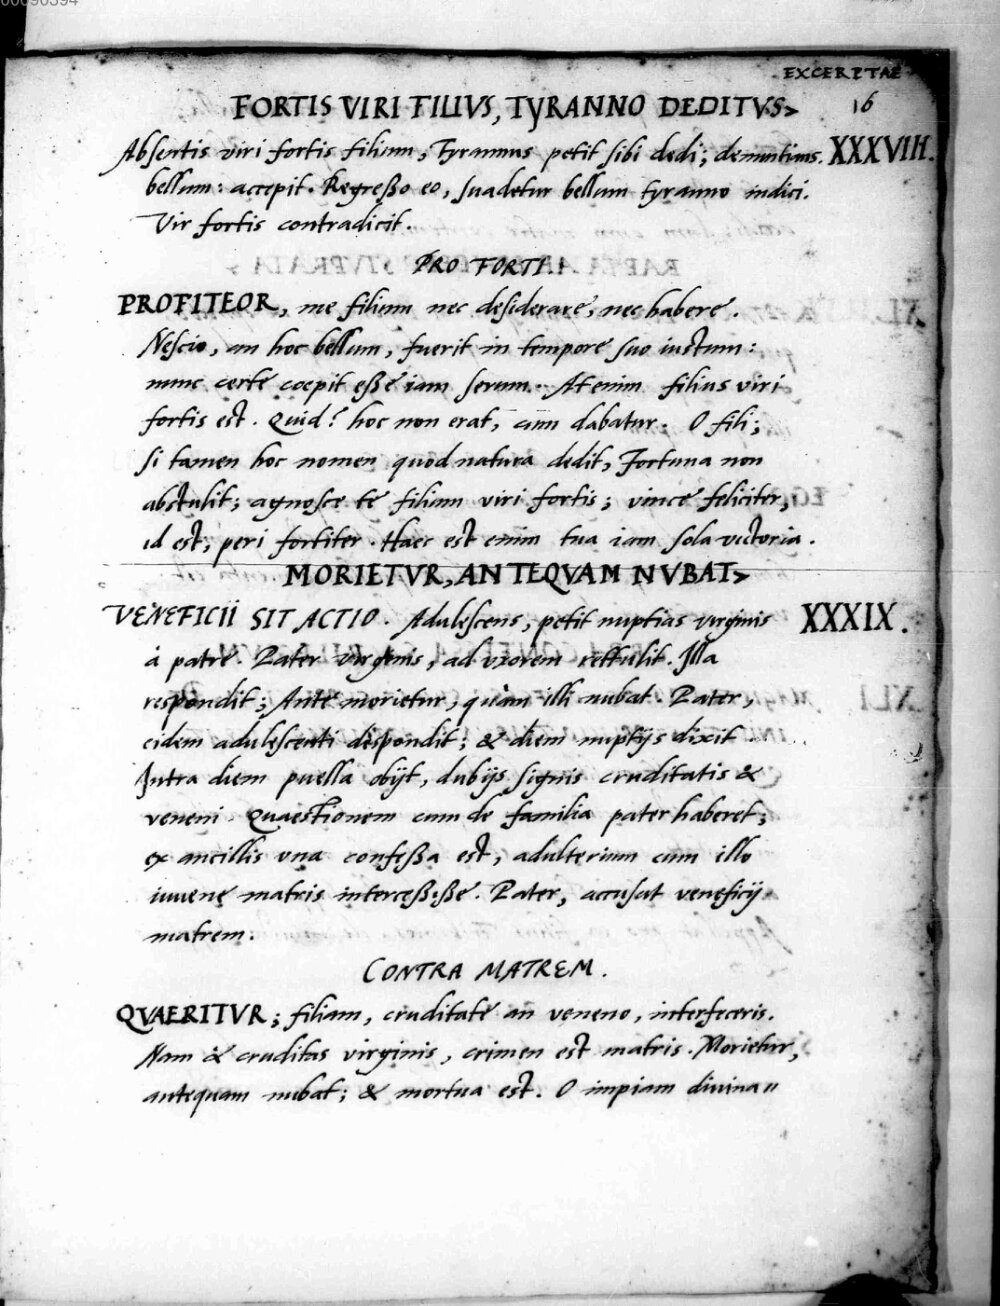 00090394
EXCERPTAE
16
FORTIS VIRI FILIVS, TYRANNO DEDITVS
Absentis viri fortis filium, Tyrannus petit sibi dedi; denuntians. XXXVIII.
bellum: accepit. Regreßo eo, suadetur bellum tyranno indici.
Vir fortis contradicit.
PRO FORTI.
PROFITEOR, me filium nec desiderare, nec habere.
Nescio, an hoc bellum, fuerit in tempore suo iustum:
nunc certe coepit eße iam serum. At enim filius viri
fortis est. Quid? hoc non erat, cum dabatur. O fili;
si tamen hoc nomen, quod natura dedit, Fortuna non
abstulit; agnosce te filium viri fortis; vince feliciter,
id est, peri fortiter. Haec est enim tua iam sola victoria.
MORIETVR, ANTEQVAM NVBAT
VENEFICII SIT ACTIO. Adulescens, petit nuptias virginis XXXIX.
à patre. Pater virginis, ad vxorem rettulit. Illa
respondit; Ante morietur, quàm illi nubat. Pater,
eidem adulescenti despondit; & diem nuptijs dixit.
Intra diem puella obijt, dubijs signis cruditatis &
veneni. Quaestionem cum de familia pater haberet;
ex ancillis vna confeßa est, adulterium cum illo
iuuene matris interceßiße. Pater, accusat veneficij
matrem.
CONTRA MATREM.
QVAERITVR; filiam, cruditate an veneno, interfeceris.
Nam & cruditas virginis, crimen est matris. Morietur,
antequam nubat; & mortua est. O impiam diuina"